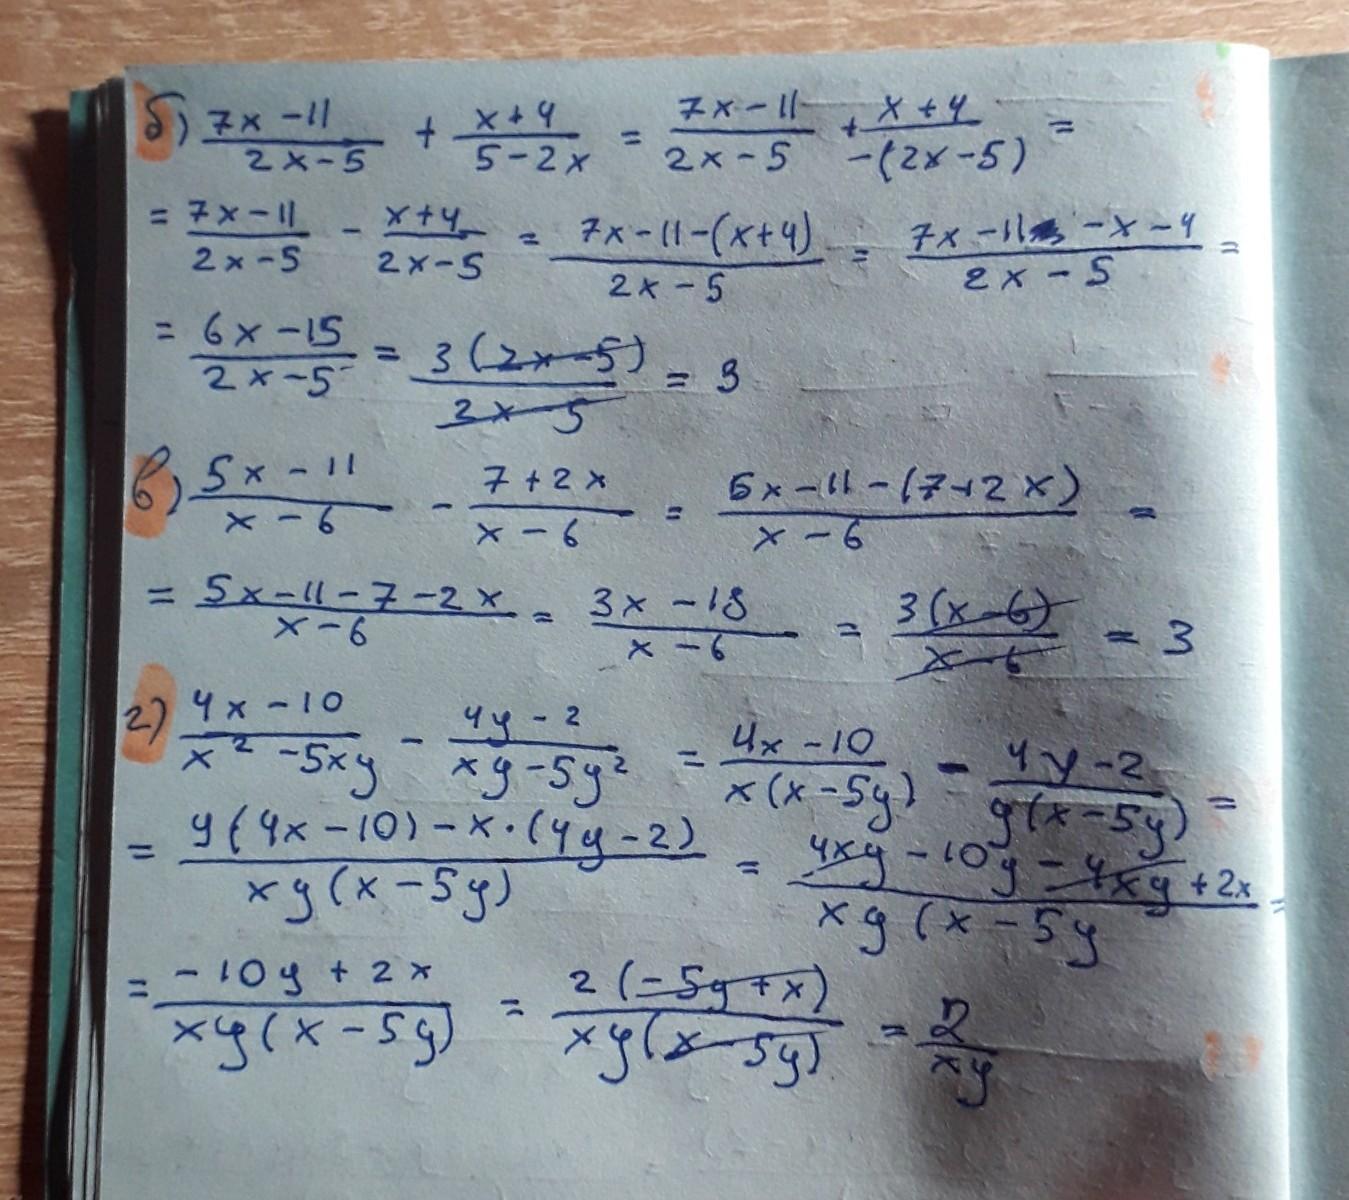 б) (7x-11)/(2x-5) + (x+4)/(5-2x) = (7x-11)/(2x-5) + (x+4)/(-(2x-5)) =
= (7x-11)/(2x-5) - (x+4)/(2x-5) = (7x-11-(x+4))/(2x-5) = (7x-11-x-4)/(2x-5) =
= (6x-15)/(2x-5) = (3(2x-5))/(2x-5) = 3
в) (5x-11)/(x-6) - (7+2x)/(x-6) = (5x-11-(7+2x))/(x-6) =
= (5x-11-7-2x)/(x-6) = (3x-18)/(x-6) = (3(x-6))/(x-6) = 3
г) (4x-10)/(x²-5xy) - (4y-2)/(xy-5y²) = (4x-10)/(x(x-5y)) - (4y-2)/(y(x-5y)) =
= (y(4x-10)-x·(4y-2))/(xy(x-5y)) = (4xy-10y-4xy+2x)/(xy(x-5y) =
= (-10y+2x)/(xy(x-5y)) = (2(-5y+x))/(xy(x-5y)) = 2/(xy)